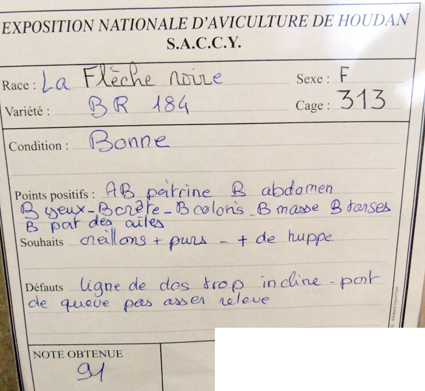 EXPOSITION NATIONALE D'AVICULTURE DE HOUDAN
S.A.C.C.Y.
Race : La Flèche noire Sexe : F
Variété : BR 184 Cage : 313
Condition : Bonne
Points positifs : AB poitrine B abdomen
B yeux - B crête - B coloris - B masse B tarses
B port des ailes
Souhaits oreillons + purs - + de huppe
Défauts ligne de dos trop incline - port
de queue pas asser releve
NOTE OBTENUE
91